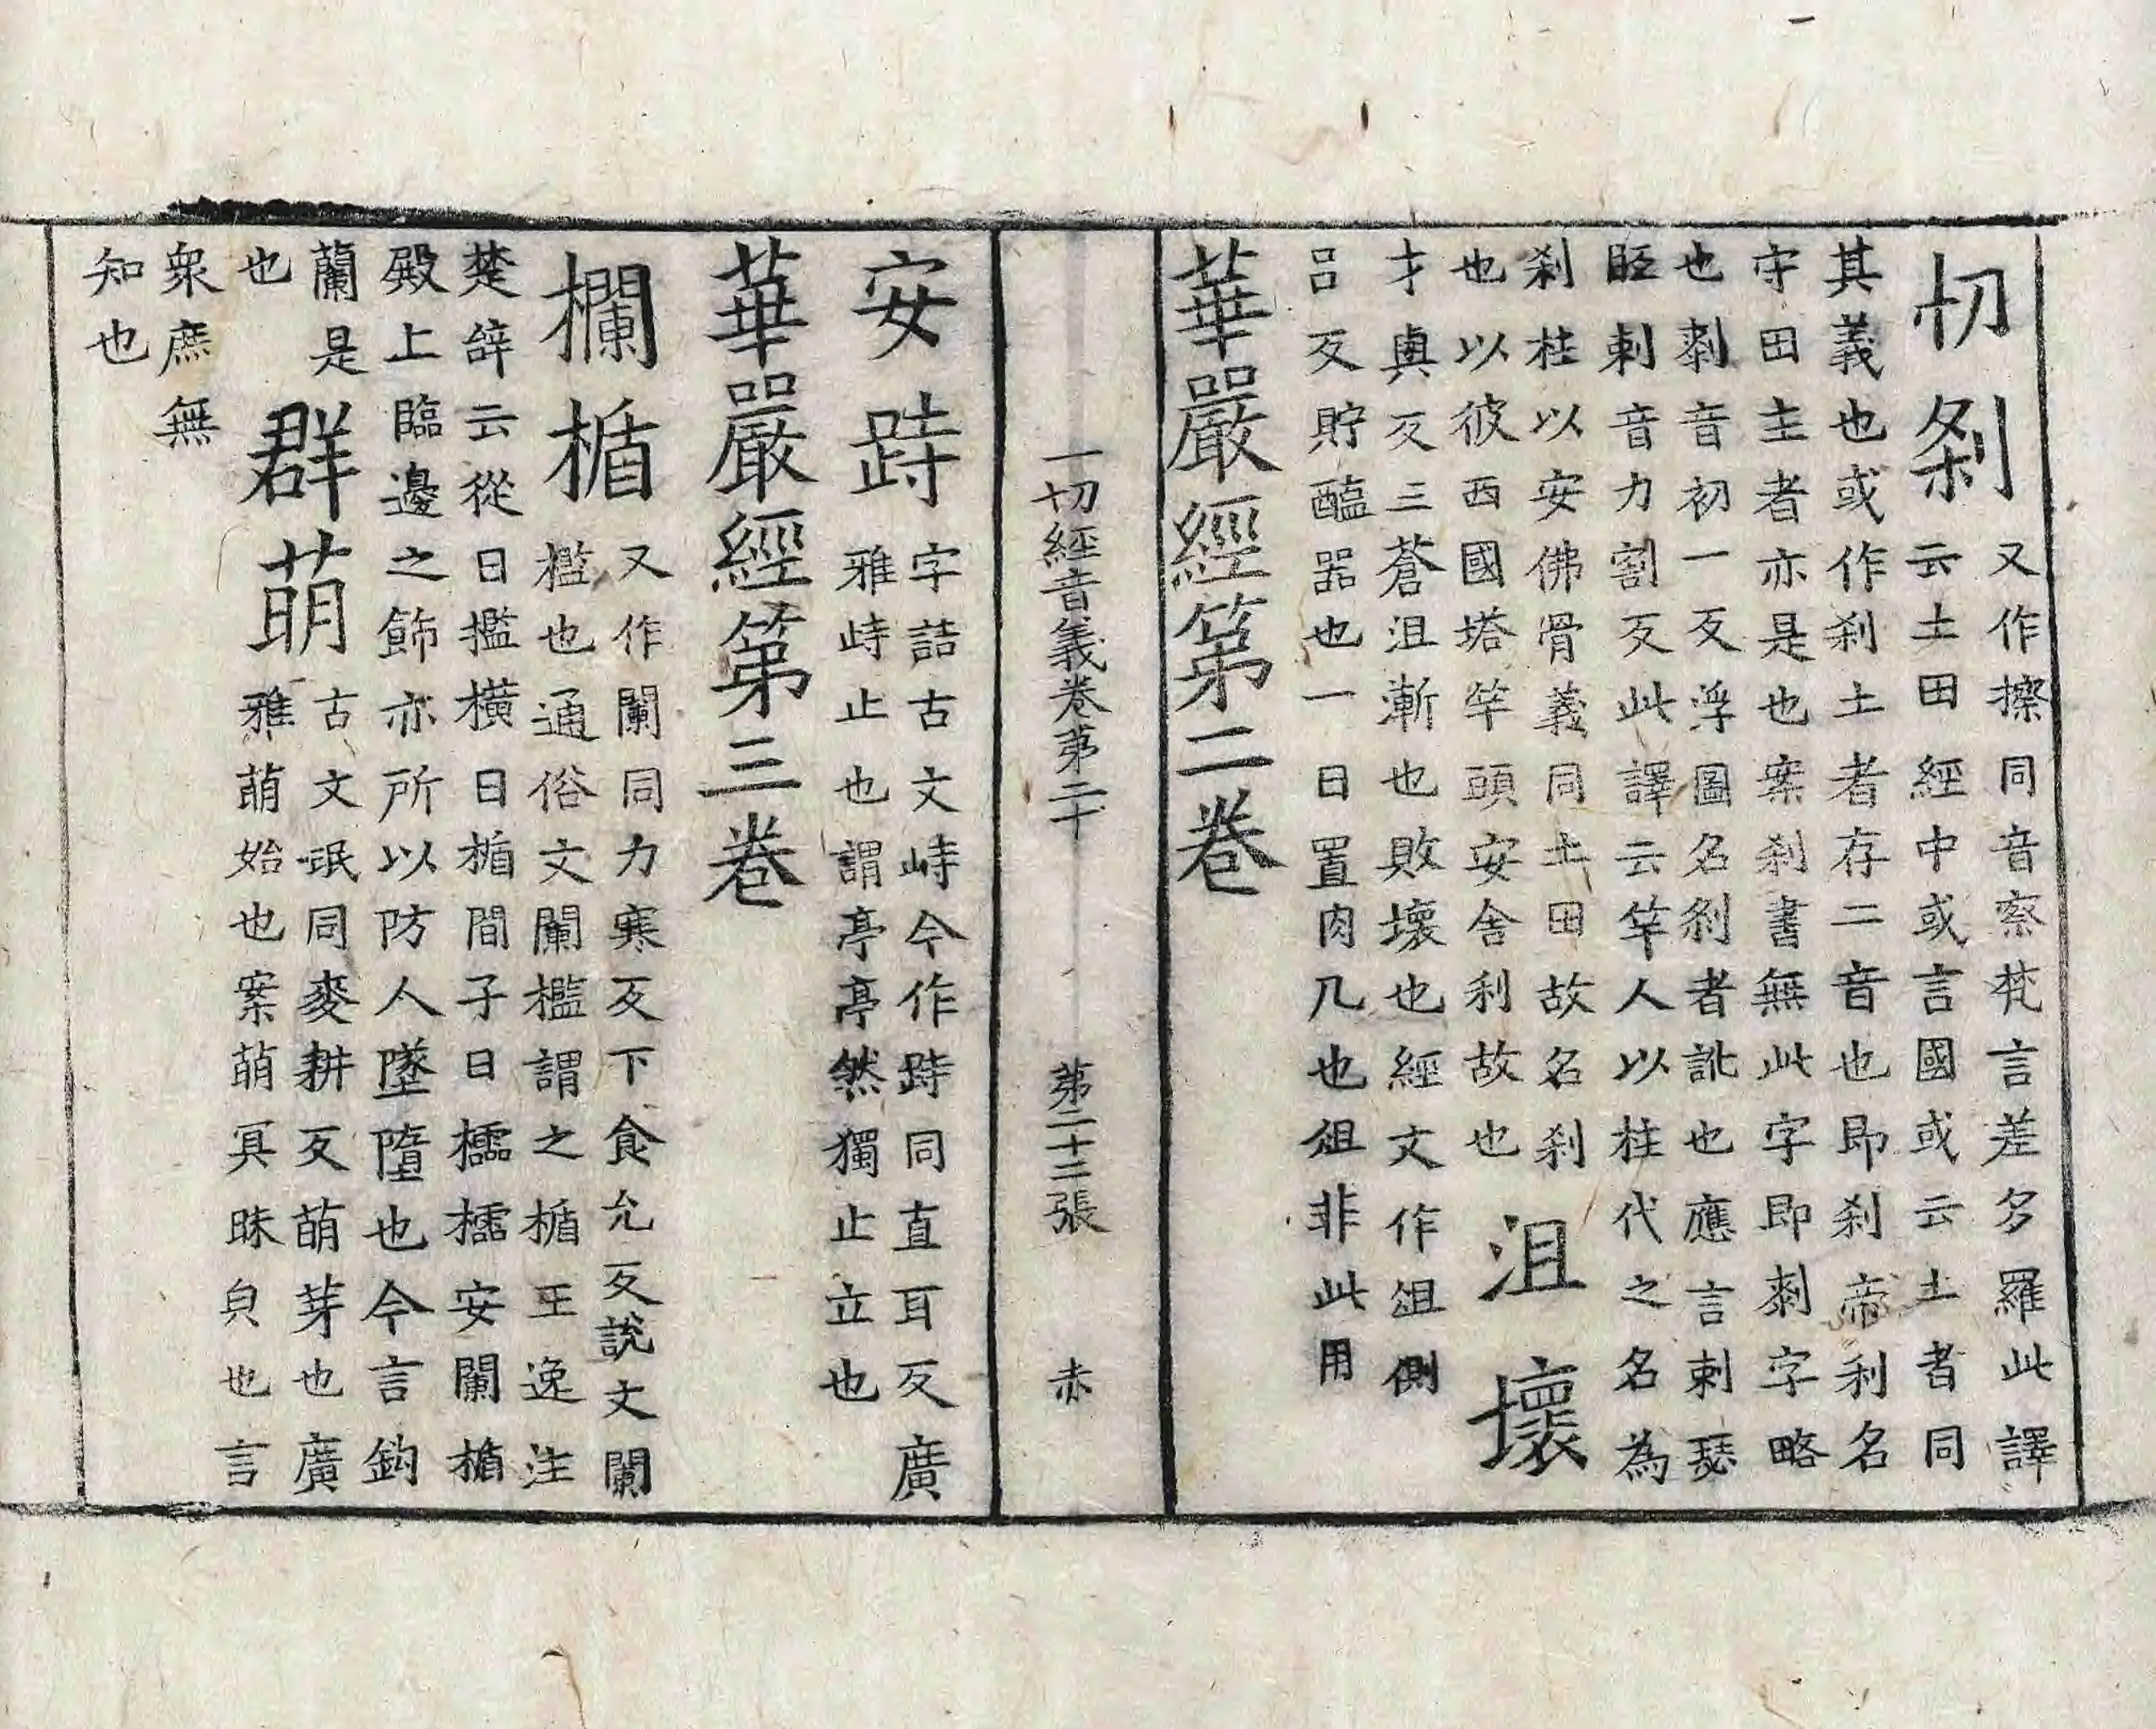 切剎又作擦同音察梵言差多羅此譯
云土田經中或言國或云土者同
其義也或作剎土者存二音也即剎帝利名
守田主者亦是也案剎書無此字即剌字略
也剌音初一反浮圖名剎者訛也應言剌瑟
胵剌音力割反此譯云竿人以柱代之名為
剎柱以安佛骨義同土田故名剎
也以彼西國塔竿頭安舍利故也
沮壞
才與反三蒼沮漸也敗壞也經文作俎側
呂反貯醢器也一曰置肉几也俎非此用
華嚴經第二卷
一切經音義卷第二十 第二十二張 赤
安跱字詰古文峙今作跱同直耳反廣
雅峙止也謂亭亭然獨止立也
華嚴經第三卷
欄楯又作闌同力寒反下食允反說文闌
檻也通俗文闌檻謂之楯王逸注
楚辭云從曰檻橫曰楯間子曰櫺櫺安闌楯
殿上臨邊之飾亦所以防人墜墮也今言鈎
蘭是
也
群萌古文氓同麥耕反萌芽也廣
雅萌始也案萌冥昧皃也言
衆庶無
知也